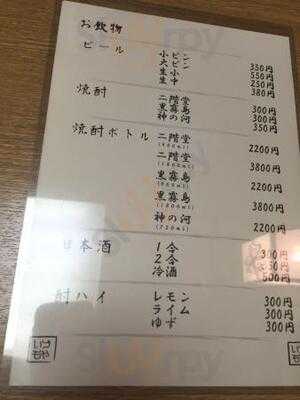 お飲物
ビール 小ビン 350円
大ビン 550円
生小 250円
生中 380円
焼酎 二階堂 300円
黒霧島 300円
神の河 350円
焼酎ボトル 二階堂 2200円
(900ml)
二階堂 3800円
(1800ml)
黒霧島 2200円
(900ml)
黒霧島 3800円
(1800ml)
神の河 2200円
(720ml)
日本酒 1合 300円
2合 円
冷酒 500円
酎ハイ レモン 300円
ライム 300円
ゆず 300円